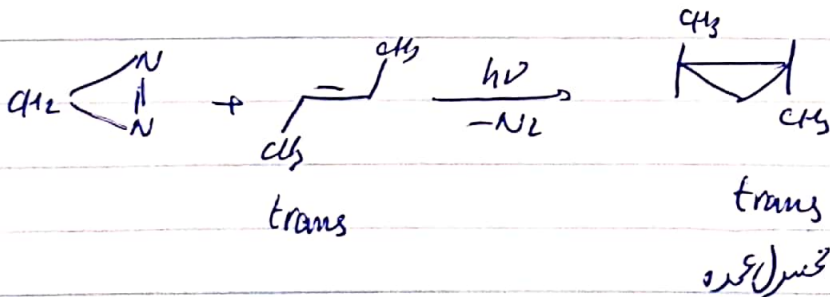 CH3
CH2 N = N + CH3 CH3 hν -N2 CH3
CH3
trans
trans
محصول عمده